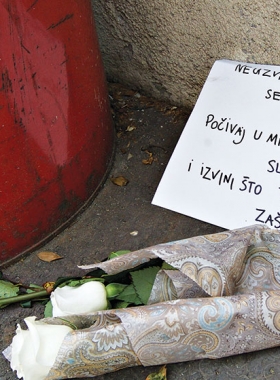 NEUZV
SE
Počivaj u Mi
SL
i izvini što
ZAŠ